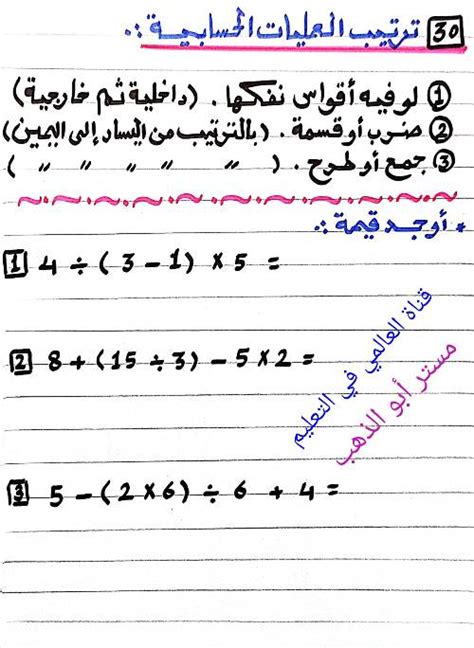 30 ترتيب العمليات الحسابية :.
① لو فيه أقواس نفكها . (داخلية ثم خارجية)
② ضرب أو قسمة . (بالترتيب من اليسار إلى اليمين)
③ جمع أو طرح . ( " " " " " )
* أوجد قيمة :.
1 4 ÷ ( 3 - 1 ) × 5 =
2 8 + (15 ÷ 3) - 5 × 2 =
قناة العالمي في التعليم
مستر أبو الذهب
3 5 - (2 × 6) ÷ 6 + 4 =